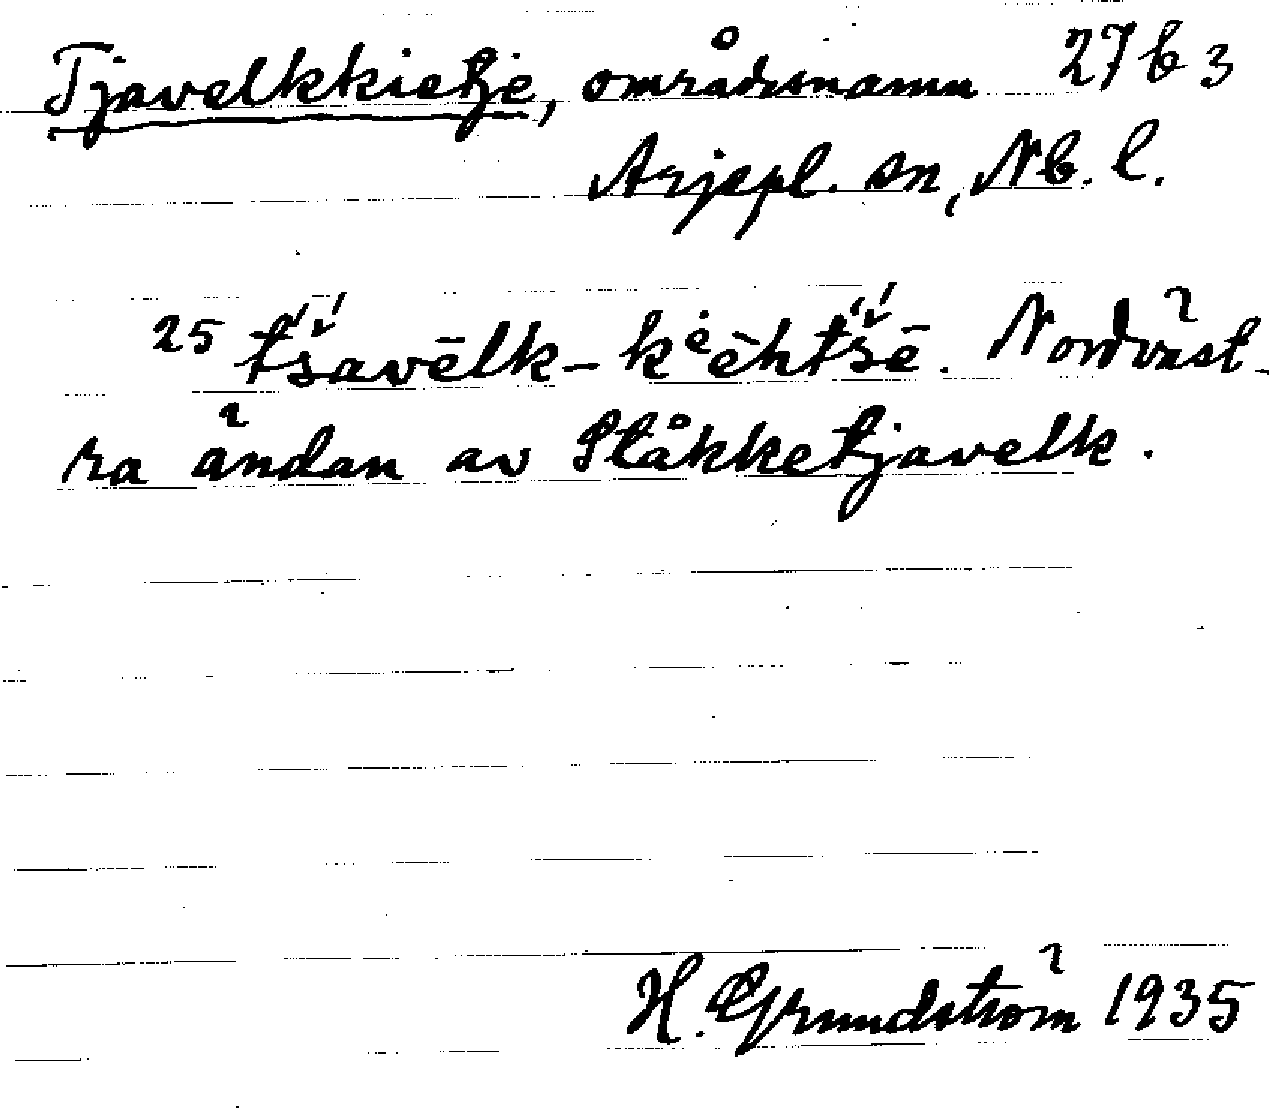 Tjavelkkietje, områdesnamn 27 b 3
Arjepl. sn, Nb. l.
25 t́š́avēlk-kėèht́š́ē. Nordväst-
ra ändan av Ståkketjavelk.
H. Grundström 1935